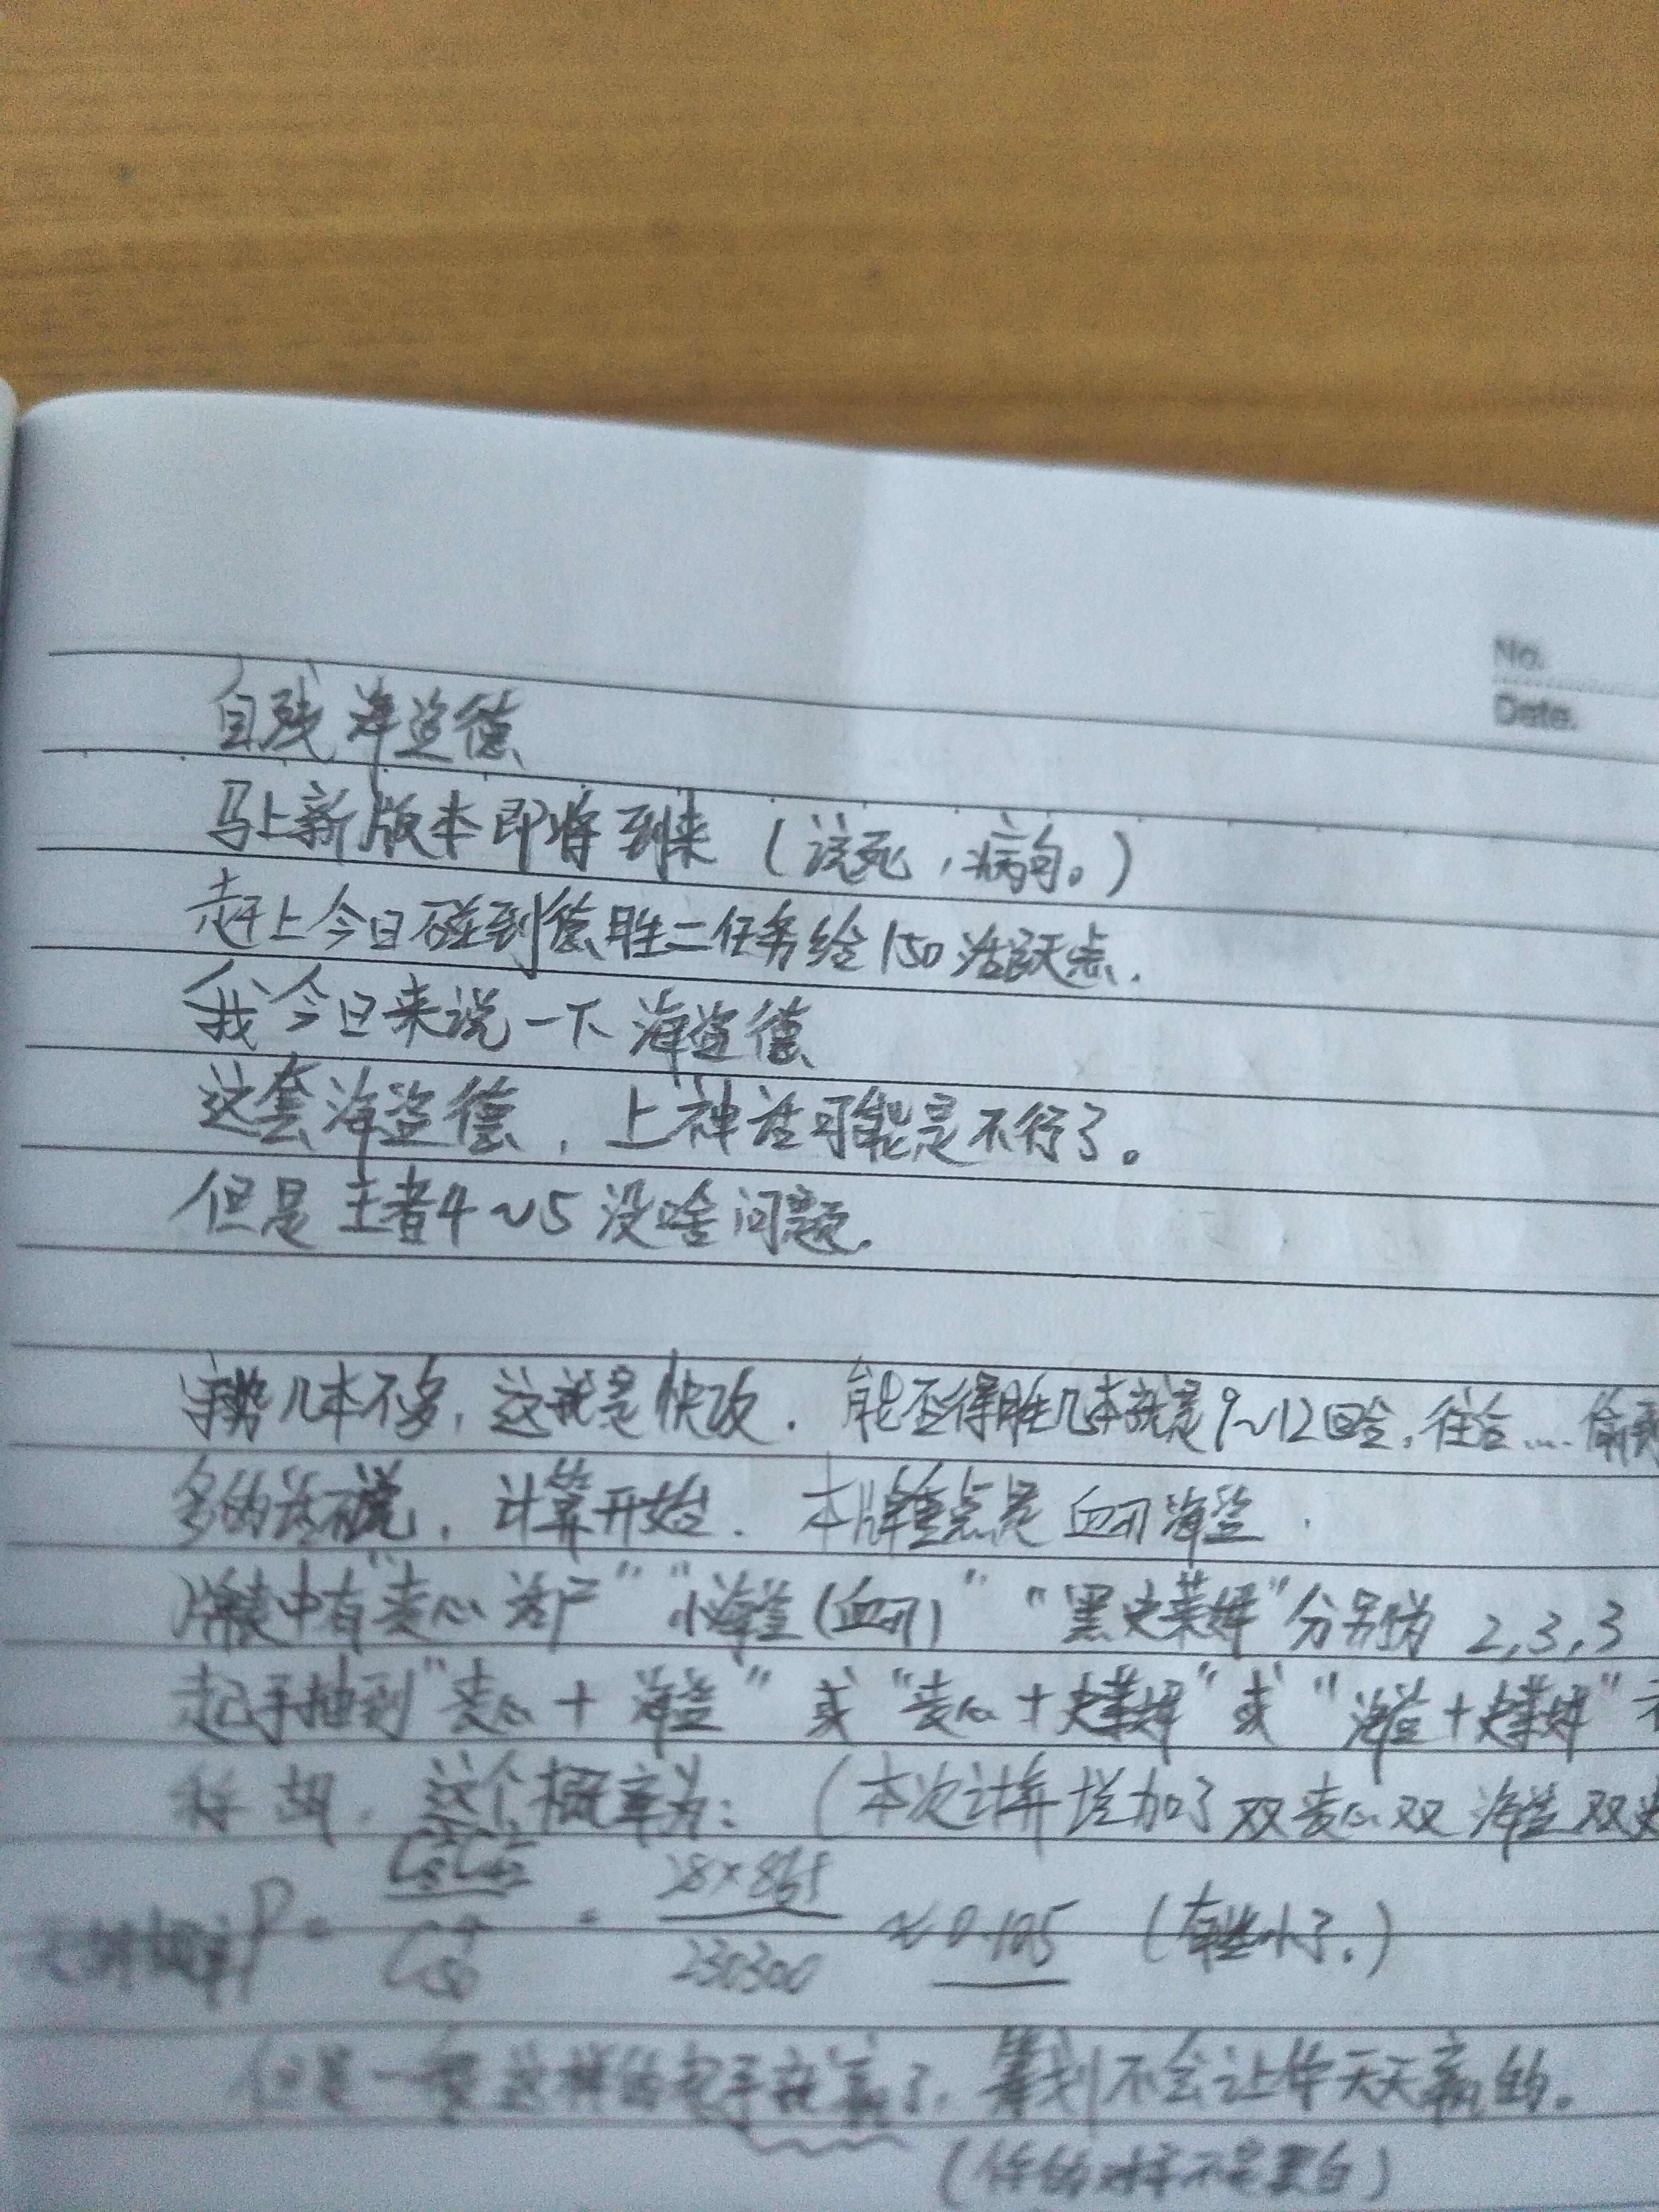 No.
Date.
自残海盗德
马上新版本即将到来（该死，病句。）
赶上今日碰到德胜二任务给150活跃点.
我今日来说一下海盗德
这套海盗德，上神话可能是不行了。
但是王者4~5没啥问题.
几本不多，这就是快攻. 能否得胜几本就是9~12回合,往合....
多的话不说，计算开始. 本牌重点是血刃海盗.
牌表中有"卖心 " "小海盗(血刃)" "黑史莱姆"分别为 2,3,3
起手抽到"卖心+海盗"或"卖心+史莱姆"或"海盗+史莱姆"
胡. 这个概率为:（本次计算增加了双卖心双海盗双史
P= C²₈C²₄₂ / C⁴₅₀ = / 230300 ≈0.105 (有些小了.)
但是一 这样的起手就赢了，筹划不会让你天天赢的。
(你的对手不是黑白)